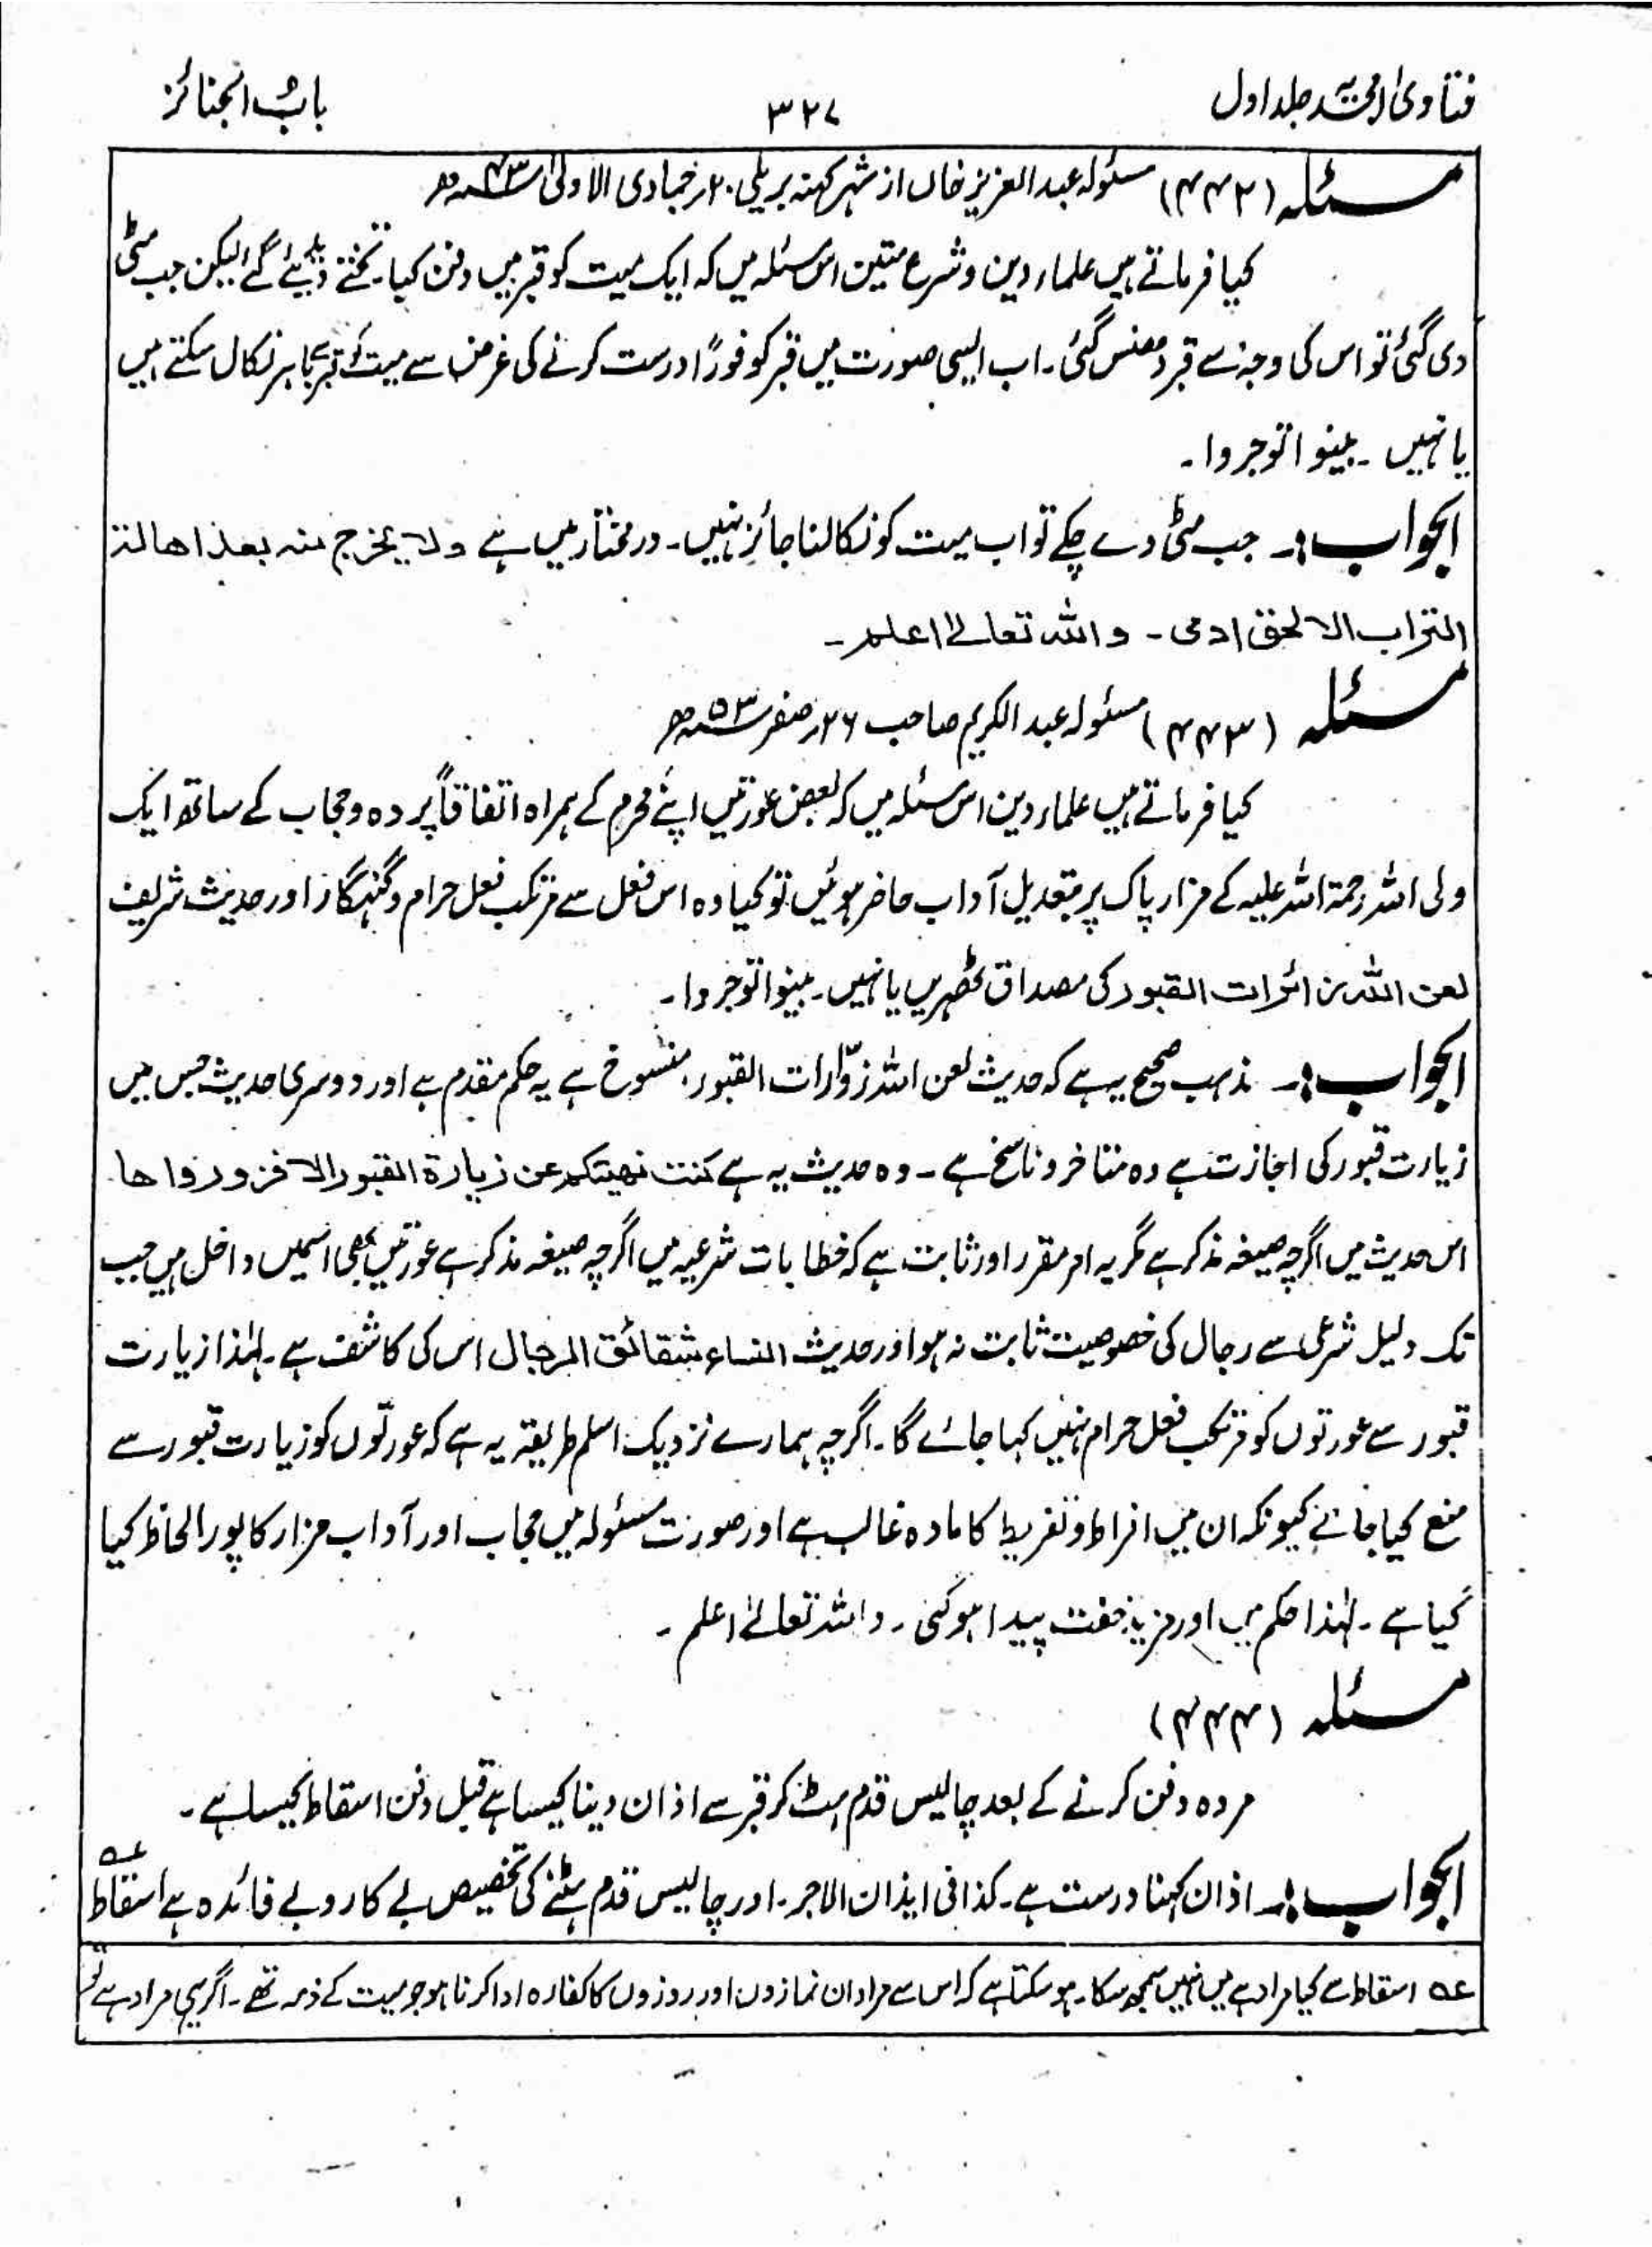 فتاویٰ امجدیہ جلد اول
۳۲۷
باب الجنائز
مسئلہ (۴۴۲) مسئولہ عبد العزیز خاں از شہر کہنہ بریلی ۲۰ر جمادی الاولیٰ ۴۳ھ
کیا فرماتے ہیں علماء دین و شرع متین اس مسئلہ میں کہ ایک میت کو قبر میں دفن کیا۔ تختے دیئے گئے لیکن جب مٹی
دی گئی تو اس کی وجہ سے قبر دھنس گئی۔ اب ایسی صورت میں قبر کو فوراً درست کرنے کی غرض سے میت کو قبر سے باہر نکال سکتے ہیں
یا نہیں۔ بینوا توجروا۔
الجواب:۔ جب مٹی دے چکے تو اب میت کو نکالنا جائز نہیں۔ در مختار میں ہے ولا یخرج منه بعد اھالة
التراب الا لحق ادمی۔ واللہ تعالیٰ اعلم۔
مسئلہ (۴۴۳) مسئولہ عبد الکریم صاحب ۲۶ر صفر ۵۳ھ
کیا فرماتے ہیں علماء دین اس مسئلہ میں کہ بعض عورتیں اپنے محرم کے ہمراہ اتفاقاً پردہ و حجاب کے ساتھ ایک
ولی اللہ رحمۃ اللہ علیہ کے مزار پاک پر بتعدیل آداب حاضر ہوئیں تو کیا وہ اس فعل سے مرتکب فعل حرام و گنہگار اور حدیث شریف
لعن اللہ زائرات القبور کی مصداق ٹھہریں یا نہیں۔ بینوا توجروا۔
الجواب:۔ مذہب صحیح یہ ہے کہ حدیث لعن اللہ زوّارات القبور، منسوخ ہے یہ حکم مقدم ہے اور دوسری حدیث جس میں
زیارت قبور کی اجازت ہے وہ متاخر و ناسخ ہے۔ وہ حدیث یہ ہے کنت نھیتکم عن زیارة القبور الا فزوروا ھا
اس حدیث میں اگرچہ صیغہ مذکر ہے مگر یہ امر مقرر اور ثابت ہے کہ خطابات شرعیہ میں اگرچہ صیغہ مذکر ہے عورتیں بھی اسمیں داخل ہیں جب
تک دلیل شرعی سے رجال کی خصوصیت ثابت نہ ہو اور حدیث النساء شقائق الرجال اس کی کاشف ہے۔ لہٰذا زیارت
قبور سے عورتوں کو مرتکب فعل حرام نہیں کہا جائے گا۔ اگرچہ ہمارے نزدیک اسلم طریقہ یہ ہے کہ عورتوں کو زیارت قبور سے
منع کیا جائے کیونکہ ان میں افراط و تفریط کا مادہ غالب ہے اور صورت مسئولہ میں حجاب اور آداب مزار کا پورا لحاظ کیا
گیا ہے۔ لہٰذا حکم میں اور مزید خفت پیدا ہوگئی۔ واللہ تعالیٰ اعلم۔
مسئلہ (۴۴۴)
مردہ دفن کرنے کے بعد چالیس قدم ہٹ کر قبر سے اذان دینا کیسا ہے قبل دفن اسقاط کیسا ہے۔
الجواب:۔ اذان کہنا درست ہے۔ کذا فی ایذان الاجر۔ اور چالیس قدم ہٹنے کی تخصیص بے کار و بے فائدہ ہے اسقاط عہ
عہ اسقاط سے کیا مراد ہے میں نہیں سمجھ سکا۔ ہو سکتا ہے کہ اس سے مراد ان نمازوں اور روزوں کا کفارہ ادا کرنا ہو جو میت کے ذمہ تھے۔ اگر یہی مراد ہے تو